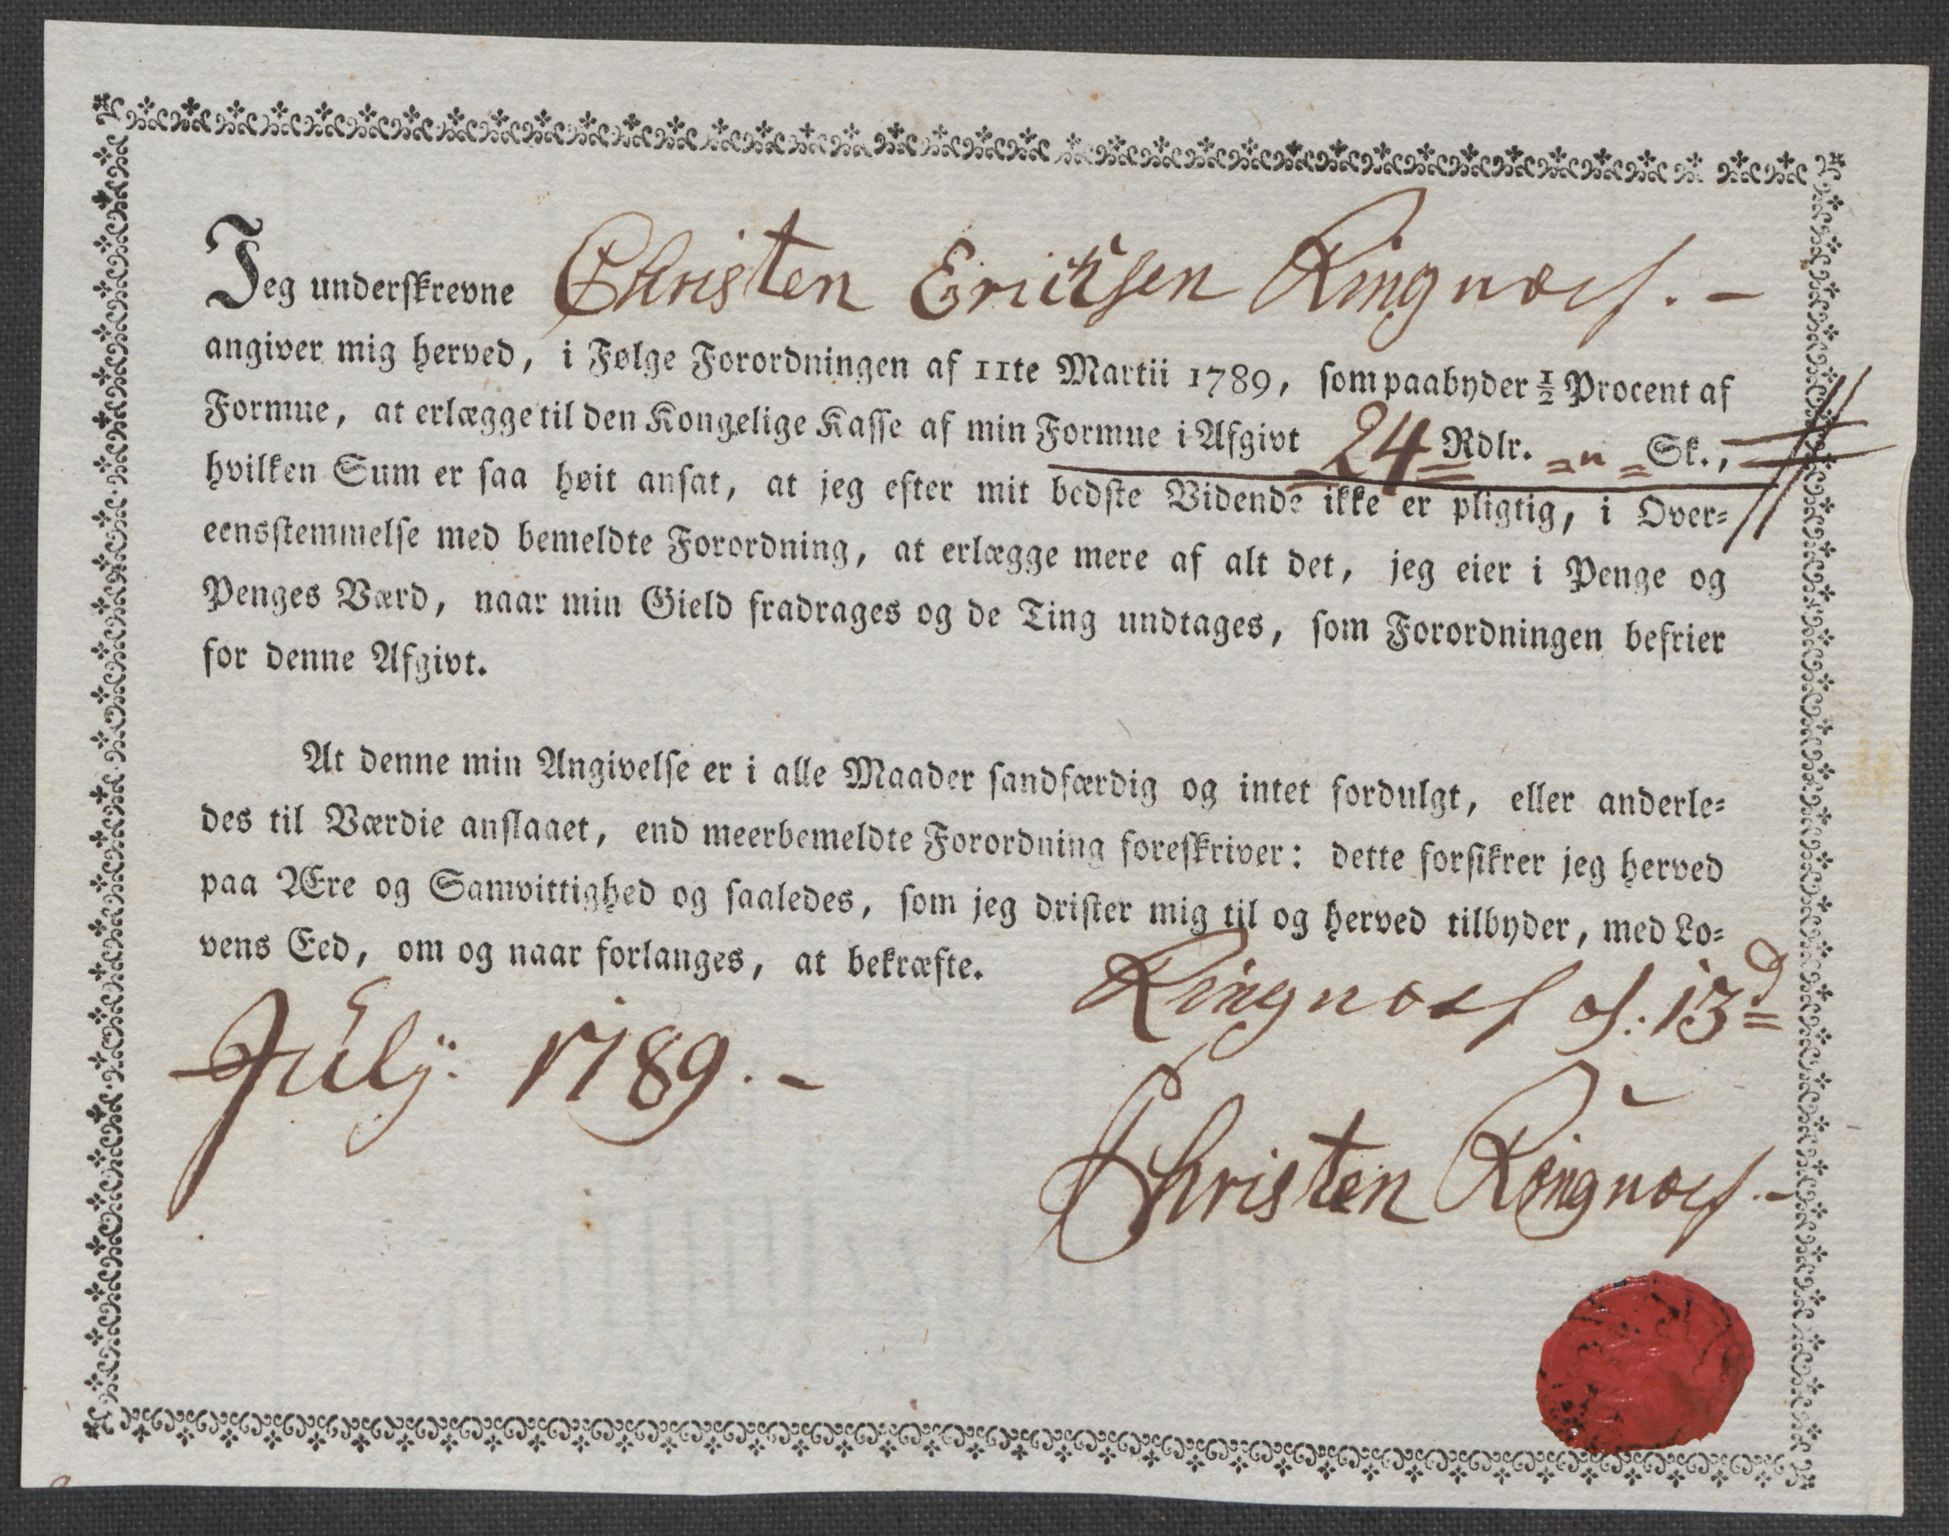 Jeg underskrevne Christen Ericksen Ringnæss. –
angiver mig herved, i Følge Forordningen af 11te Martii 1789, som paabyder ½ Procent af
Formue, at erlægge til den Kongelige Kasse af min Formue i Afgivt 24 Rdlr. = " = Sk.,
hvilken Sum er saa høit ansat, at jeg efter mit bedste Vidende ikke er pligtig, i Over=
eensstemmelse med bemeldte Forordning, at erlægge mere af alt det, jeg eier i Penge og
Penges Værd, naar min Gield fradrages og de Ting undtages, som Forordningen befrier
for denne Afgivt.
At denne min Angivelse er i alle Maader sandfærdig og intet fordulgt, eller anderle=
des til Værdie anslaaet, end meerbemeldte Forordning foreskriver: dette forsikrer jeg herved
paa Ære og Samvittighed og saaledes, som jeg drister mig til og herved tilbyder, med Lo=
vens Eed, om og naar forlanges, at bekræfte.
Ringnæss d: 13d
July: 1789. –
Christen Ringnæss. –